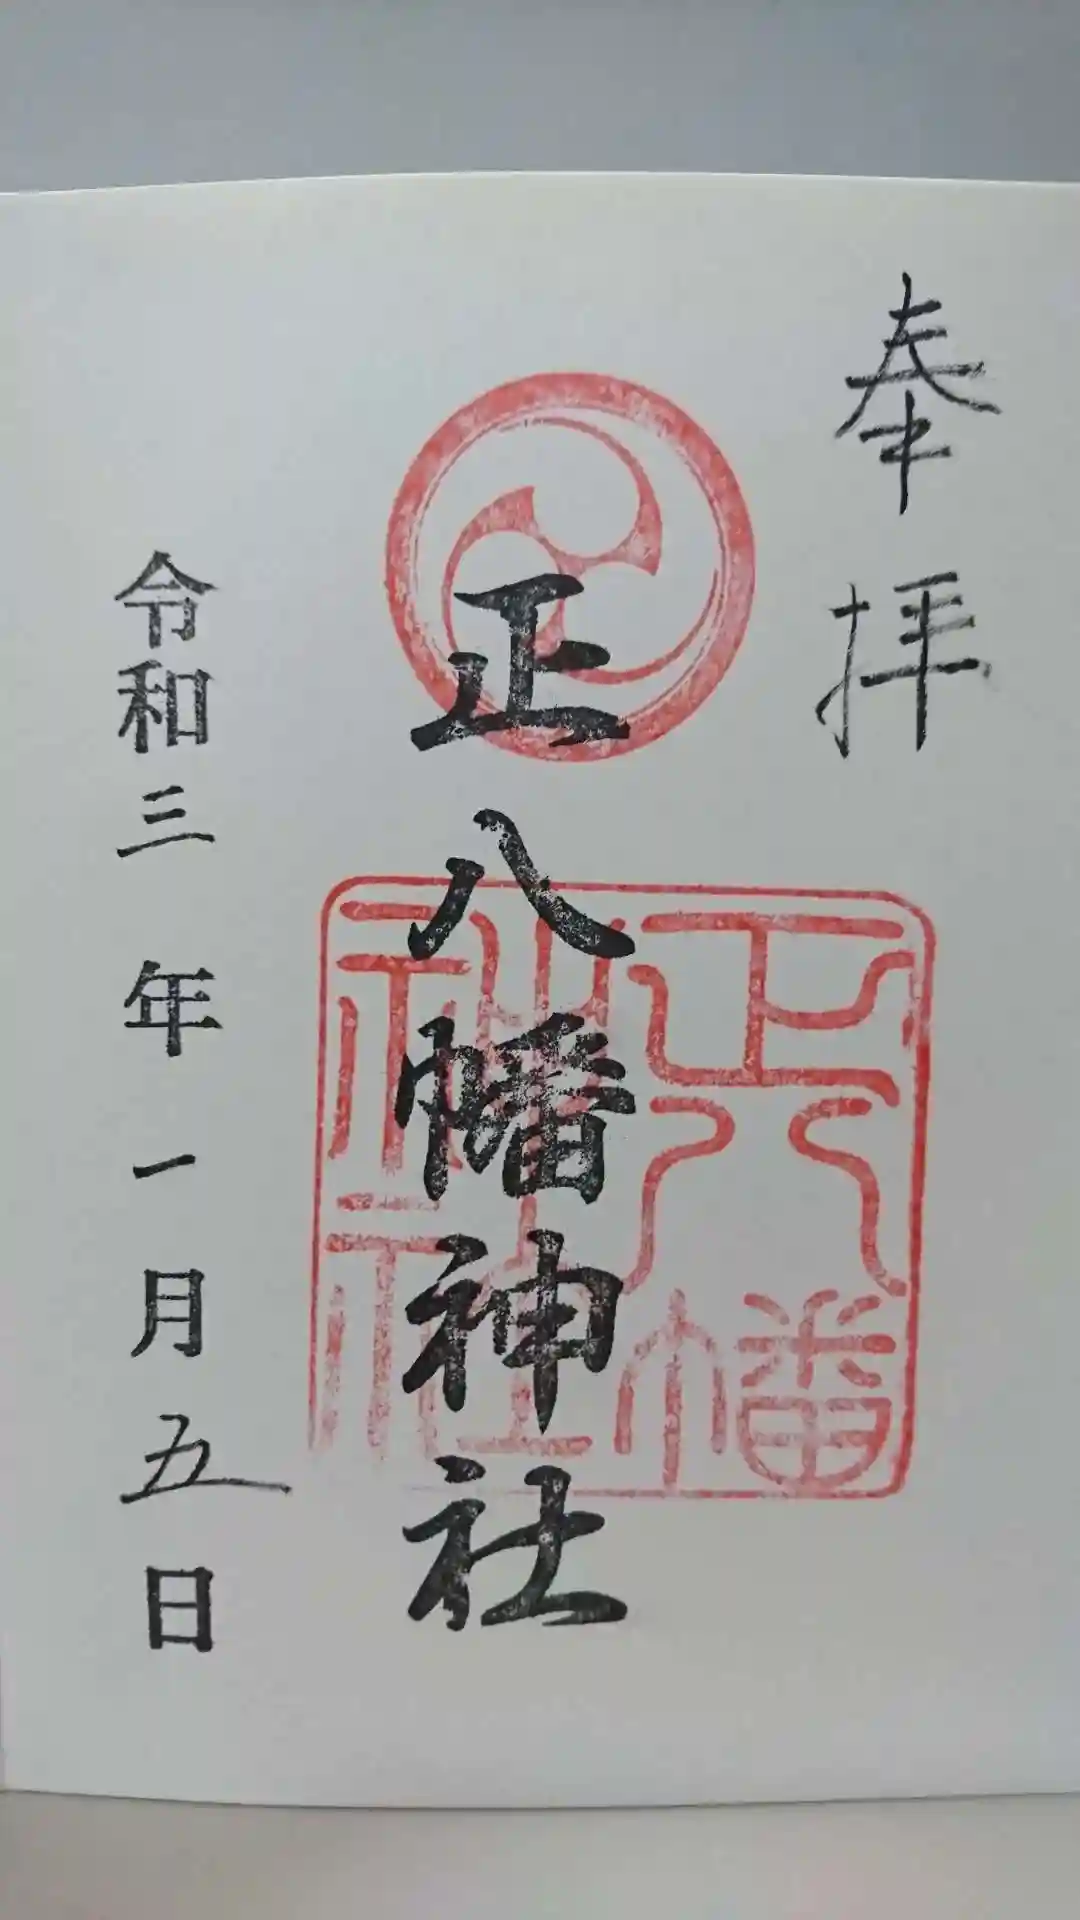 奉拝
正八幡神社
正八幡
神社
令和三年一月五日